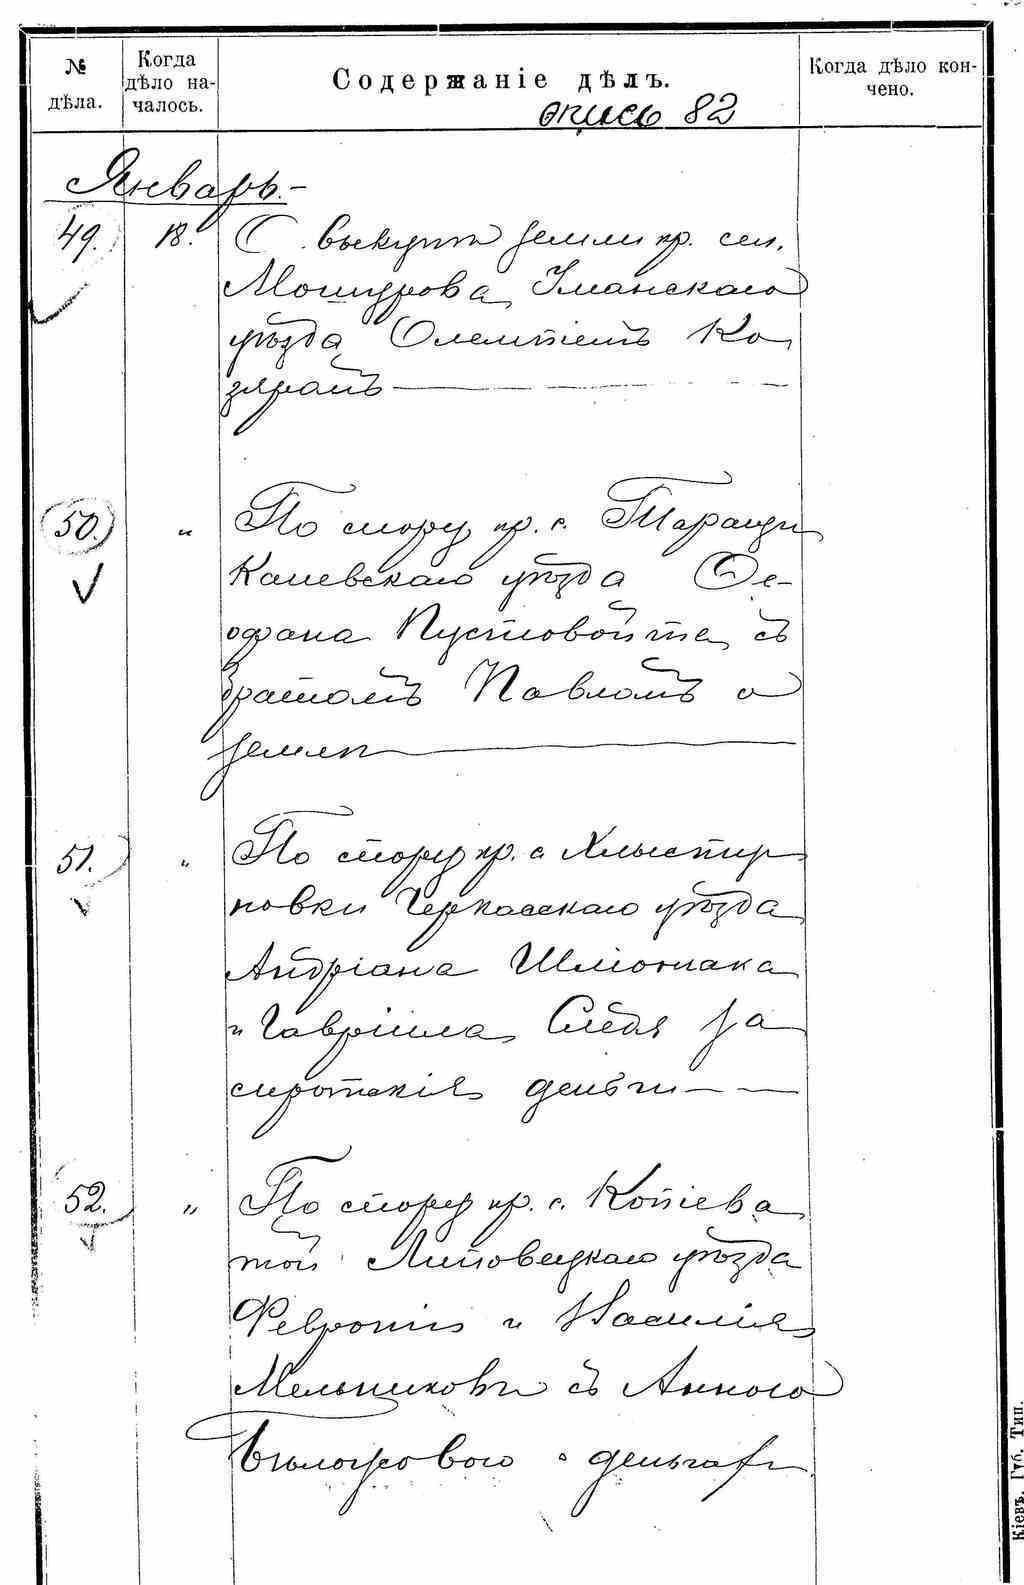 № дѣла.
Когда дѣло на-
чалось.
Содержаніе дѣлъ.
Когда дѣло кон-
чено.
опись 82
Январь.-
49. 18. О выкупѣ земли кр. сел.
Мошурова Уманскаго
уѣзда Олемпіемъ Ко
зяромъ
50. " По спору кр. с. Таращи
Каневскаго уѣзда Ѳе-
офана Пустовойта съ
братомъ Павломъ о
землѣ
51. " По спору кр. с. Хлысту
новки Черкасскаго уѣзда
Андріана
и Гавріила за
сиротскія деньги
52. " По спору кр. с. Копіева
той Липовецкаго уѣзда
Февроніи и Василія
Мельниковъ съ Анною
Бѣлоусовою о деньгахъ
Кіевъ. Губ. Тип.